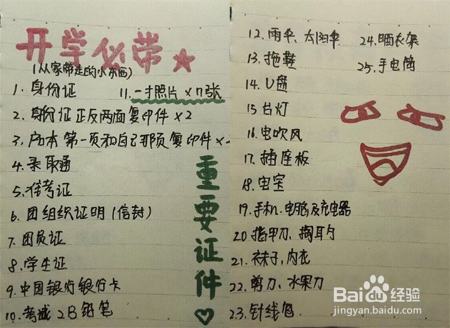 开学必带
(从家带走的小东西)
1. 身份证
11. 一寸照片 ×n张
2. 身份证正反两面复印件×2
3. 户口本第一页和自己那页复印件×
4. 录取通
5. 准考证
6. 团组织证明(信封)
7. 团员证
8. 学生证
9. 中国银行银行卡
10. 考试2B铅笔
重要证件
12. 雨伞、太阳伞
13. 拖鞋
14. U盘
15. 台灯
16. 电吹风
17. 插座板
18.
19. 手机、电脑及充电器
20. 指甲刀、掏耳勺
21. 袜子,内衣
22. 剪刀、水果刀
23. 针线包
24. 晒衣架
25. 手电筒
Baidu 经验
jingyan.baidu.com